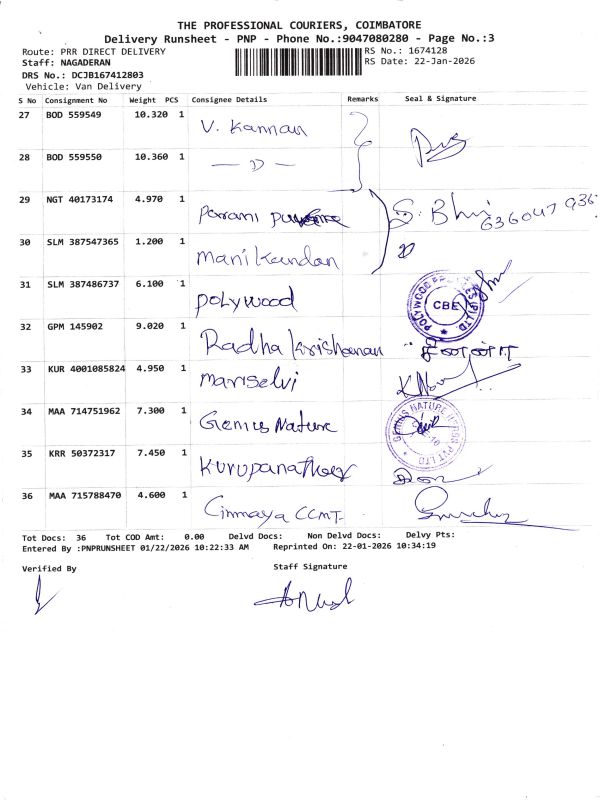 THE PROFESSIONAL COURIERS, COIMBATORE
Delivery Runsheet - PNP - Phone No.:9047080280 - Page No.:3
Route: PRR DIRECT DELIVERY
RS No.: 1674128
Staff: NAGADERAN
RS Date: 22-Jan-2026
DRS No.: DCJB167412803
Vehicle: Van Delivery
S No Consignment No Weight PCS Consignee Details Remarks Seal & Signature
27 BOD 559549 10.320 1 V. Kannan
28 BOD 559550 10.360 1 — D —
29 NGT 40173174 4.970 1 S. Bhu 636047 936
30 SLM 387547365 1.200 1 Manikandan
31 SLM 387486737 6.100 1 Polywood CBE
32 GPM 145902 9.020 1 Radha Krishanan
33 KUR 4001085824 4.950 1 Mariselvi
34 MAA 714751962 7.300 1 Genius Nature
35 KRR 50372317 7.450 1
36 MAA 715788470 4.600 1 Cinmaya CCMT
Tot Docs: 36 Tot COD Amt: 0.00 Delvd Docs: Non Delvd Docs: Delvy Pts:
Entered By :PNPRUNSHEET 01/22/2026 10:22:33 AM Reprinted On: 22-01-2026 10:34:19
Verified By Staff Signature